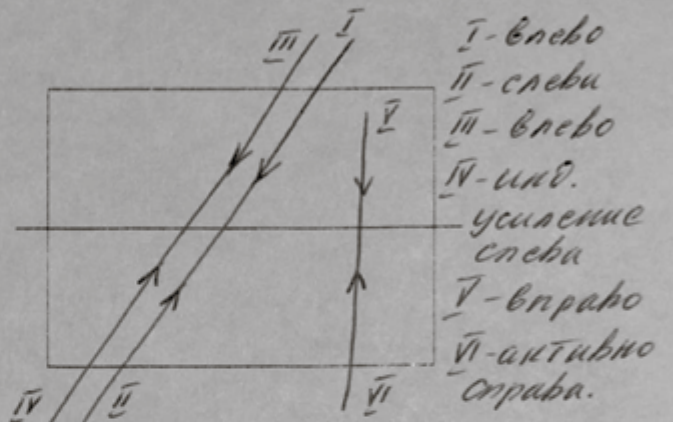 III I
I - влево
II - слева
III - влево
V
IV - инд.
усиление
слева
V - вправо
VI - активно
справа.
IV II VI